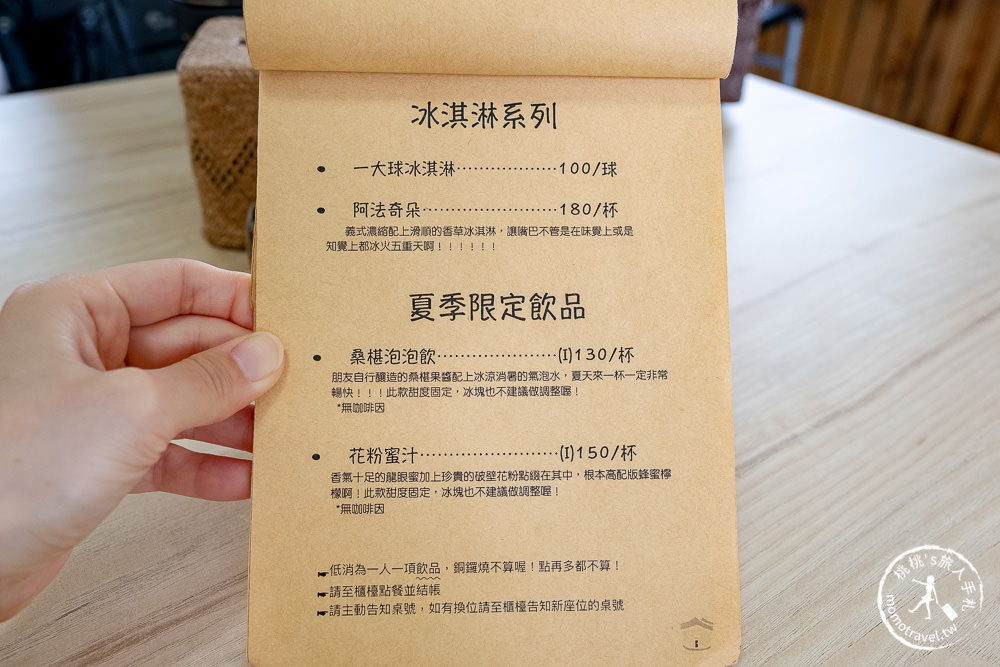 冰淇淋系列
● 一大球冰淇淋··················100/球
● 阿法奇朵························180/杯
義式濃縮配上滑順的香草冰淇淋，讓嘴巴不管是在味覺上或是
知覺上都冰火五重天啊！！！！！！
夏季限定飲品
● 桑椹泡泡飲·····················(I)130/杯
朋友自行釀造的桑椹果醬配上冰涼消暑的氣泡水，夏天來一杯一定非常
暢快！！！此款甜度固定，冰塊也不建議做調整喔！
*無咖啡因
● 花粉蜜汁························(I)150/杯
香氣十足的龍眼蜜加上珍貴的破壁花粉點綴在其中，根本高配版蜂蜜檸
檬啊！此款甜度固定，冰塊也不建議做調整喔！
*無咖啡因
☛低消為一人一項飲品，銅鑼燒不算喔！點再多都不算！
☛請至櫃檯點餐並結帳
☛請主動告知桌號，如有換位請至櫃檯告知新座位的桌號
桃桃's旅人手札
momotravel.tw